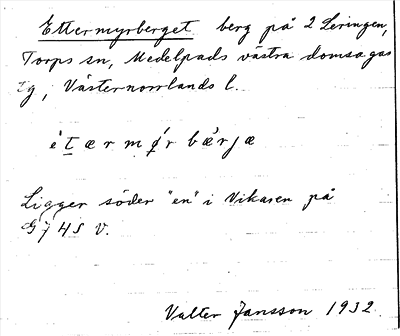 Ettermyrberget berg på 2 Leringen,
Torps sn, Medelpads västra domsagas
tg, Västernorrlands l.
è t æ r m ǿ r bæ̀rjæ
Ligger söder "en" i Vikasen på
G7 HS V.
Valter Jansson 1932.